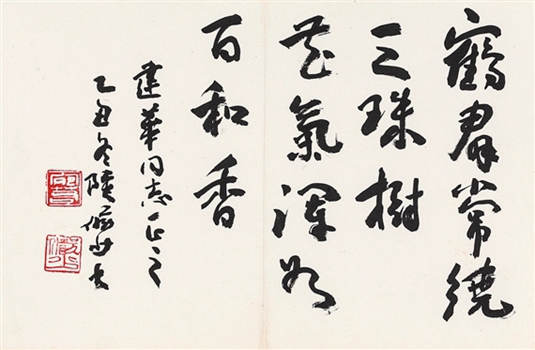 鶴羣常繞
三珠樹
花氣渾如
百和香
建華同志正之
乙丑冬陸儼少書